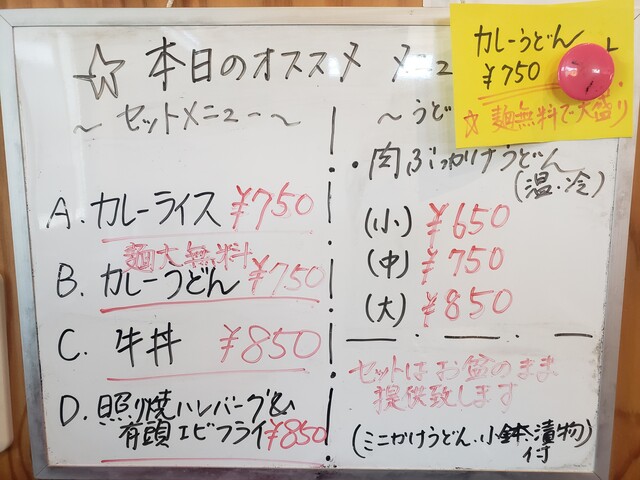 ☆ 本日のオススメ メニュ
～ セットメニュー ～
A. カレーライス ¥750
麺大無料
B. カレーうどん ¥750
C. 牛丼 ¥850
D. 照り焼ハンバーグ&
有頭エビフライ ¥850
カレーうどん
¥750
☆ 麺無料で大盛り
～ うど
・肉ぶっかけうどん
(温・冷)
(小) ¥650
(中) ¥750
(大) ¥850
セットはお盆のまま
提供致します
(ミニかけうどん、小鉢、漬物)
付